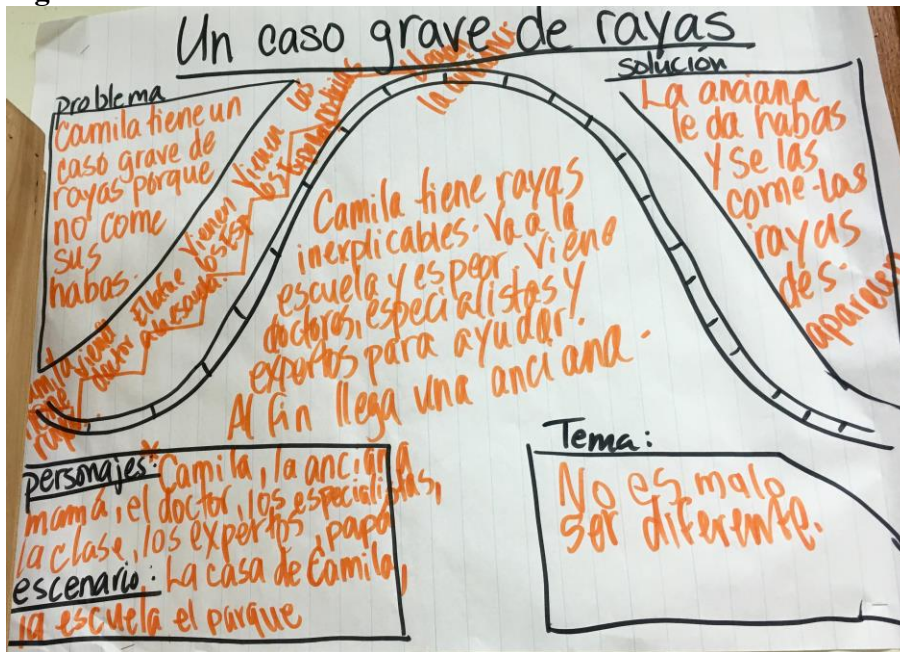 Un caso grave de rayas
problema
Camila tiene un
caso grave de
rayas porque
no come
sus
habas.
Camila
tiene
rayas
Viene
doctor
Vienen
los Esp
Vienen
los
Vienen los
la anciana.
Camila tiene rayas
inexplicables. Va a la
escuela y es peor. Viene
doctoros, especialistas y
expertos para ayudar.
Al fin llega una anciana.
solución
La anciana
le da habas
y se las
come. las
rayas
des-
aparecen
personajes: Camila, la anciana
mamá, el doctor, los especialistas,
la clase, los expertos, papá
escenario: La casa de Camila,
la escuela el parque
Tema:
No es malo
ser diferente.